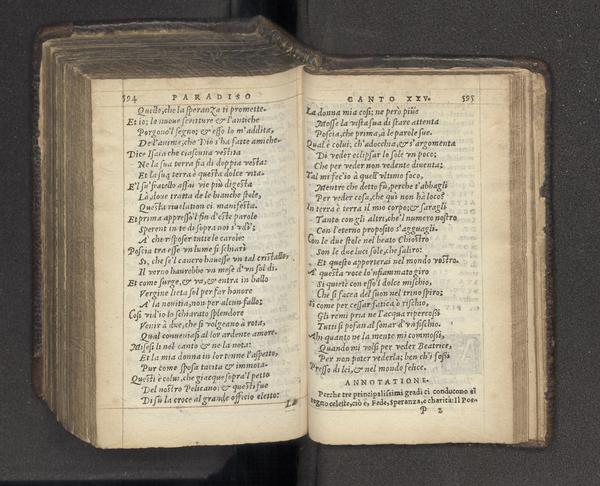 594 PARADISO
Quello, che la speranza ti promette.
Et io; le nuoue scritture & l'antiche
Porgono'l segno; & esso lo m'addita,
De l'anime, che Dio s'ha fatte amiche.
Dice Isaia che ciascuna vestita
Ne la sua terra fia di doppia vesta:
Et la sua terra è questa dolce vita.
E'l su' fratello assai vie più digesta
Là, doue tratta de le bianche stole,
Questa riuelation ci manifesta.
Et prima appresso'l fin d'este parole
Sperent in te di sopra noi s'vdì;
A' che risposer tutte le carole:
Poscia tra esse vn lume si schiarì
Sì, che se'l cancro hauesse vn tal cristallo,
Il verno haurebbe vn mese d'vn sol dì.
Et come surge, & va, & entra in ballo
Vergine lieta sol per far honore
A' la nouitia, non per alcun fallo;
Così vid'io lo schiarato splendore
Venir à due, che si volgeano à rota,
Qual conueniasi al lor ardente amore.
Misesi lì nel canto & ne la nota:
Et la mia donna in lor tenne l'aspetto,
Pur come sposa tacita & immota.
Questi è colui, che giacque sopra'l petto
Del nostro Pelicano; & questi fue
Di sù la croce al grande officio eletto:
La
CANTO XXV. 595
La donna mia così; ne però piùe
Mosse la vista sua di stare attenta
Poscia, che prima, à le parole sue.
Qual è colui, ch'adocchia, & s'argomenta
Di veder eclipsar lo sole vn poco;
Che per veder non vedente diuenta:
Tal mi fec'io à quell'vltimo foco,
Mentre che detto fù, perche t'abbagli
Per veder cosa, che quì non hà loco?
In terra è terra il mio corpo; & saragli
Tanto con gli altri, che'l numero nostro
Con l'eterno proposito s'agguagli.
Con le due stole nel beato Chiostro
Son le due luci sole, che saliro:
Et questo apporterai nel mondo vostro.
A' questa voce lo'nfiammato giro
Si quietò con esso'l dolce mischio,
Che si facea del suon nel trino spiro;
Sì come per cessar fatica ò rischio,
Gli remi pria ne l'acqua ripercossi
Tutti si posan al sonar d'vn fischio.
Ahi quanto ne la mente mi commossi,
Quando mi volsi per veder Beatrice,
Per non poter vederla; ben ch'i fossi
Presso di lei, & nel mondo felice.
ANNOTATIONE.
Perche tre principalissimi gradi ci conducono al
regno celeste, ciò è, Fede, speranza, e charità: Il Poe-
P 2